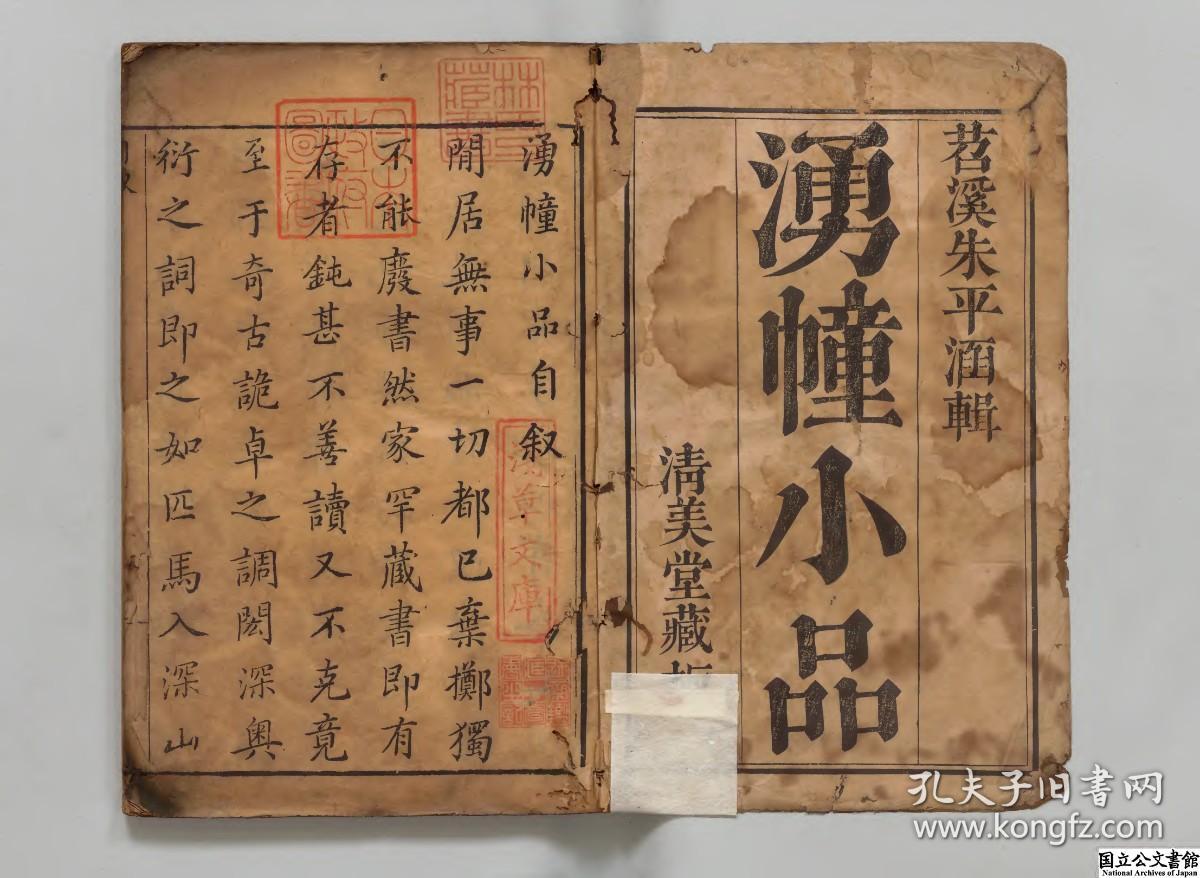 苕溪朱平涵輯
湧幢小品
清美堂藏板
湧幢小品自叙
閒居無事一切都已棄擲獨
不能廢書然家罕藏書即有
存者鈍甚不善讀又不克竟
至于奇古詭卓之調閎深奧
衍之詞即之如匹馬入深山
林氏藏書
日本政府圖書
淺草文庫
孔夫子旧书网
www.kongfz.com
国立公文書館
National Archives of Japan